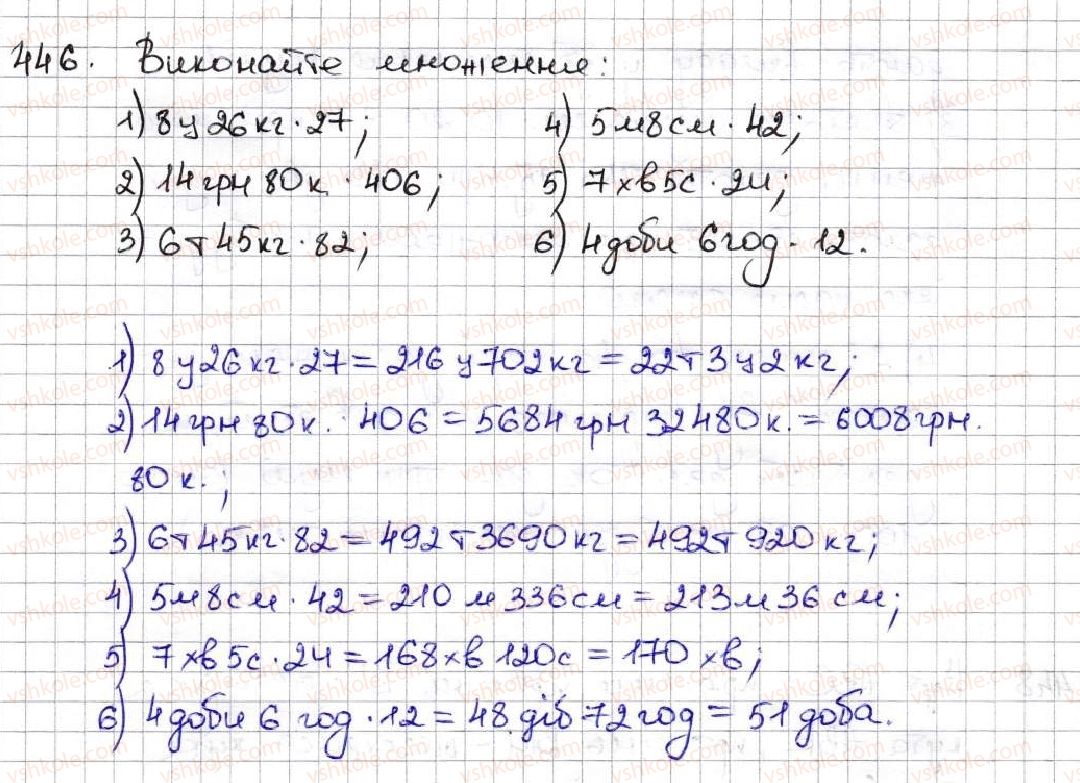 446. Виконайте множення:
1) 8 ц 26 кг · 27; 4) 5 м 8 см · 42;
2) 14 грн 80 к · 406; 5) 7 хв 5 с · 24;
3) 6 т 45 кг · 82; 6) 4 доби 6 год · 12.
1) 8 ц 26 кг · 27 = 216 ц 702 кг = 22 т 3 ц 2 кг;
2) 14 грн 80 к. · 406 = 5684 грн 32480 к. = 6008 грн.
80 к.;
3) 6 т 45 кг · 82 = 492 т 3690 кг = 492 т 920 кг;
4) 5 м 8 см · 42 = 210 м 336 см = 213 м 36 см;
5) 7 хв 5 с · 24 = 168 хв 120 с = 170 хв;
6) 4 доби 6 год · 12 = 48 діб 72 год = 51 доба.